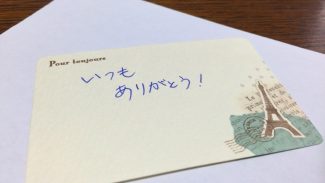 Pour toujours
いつも
ありがとう！